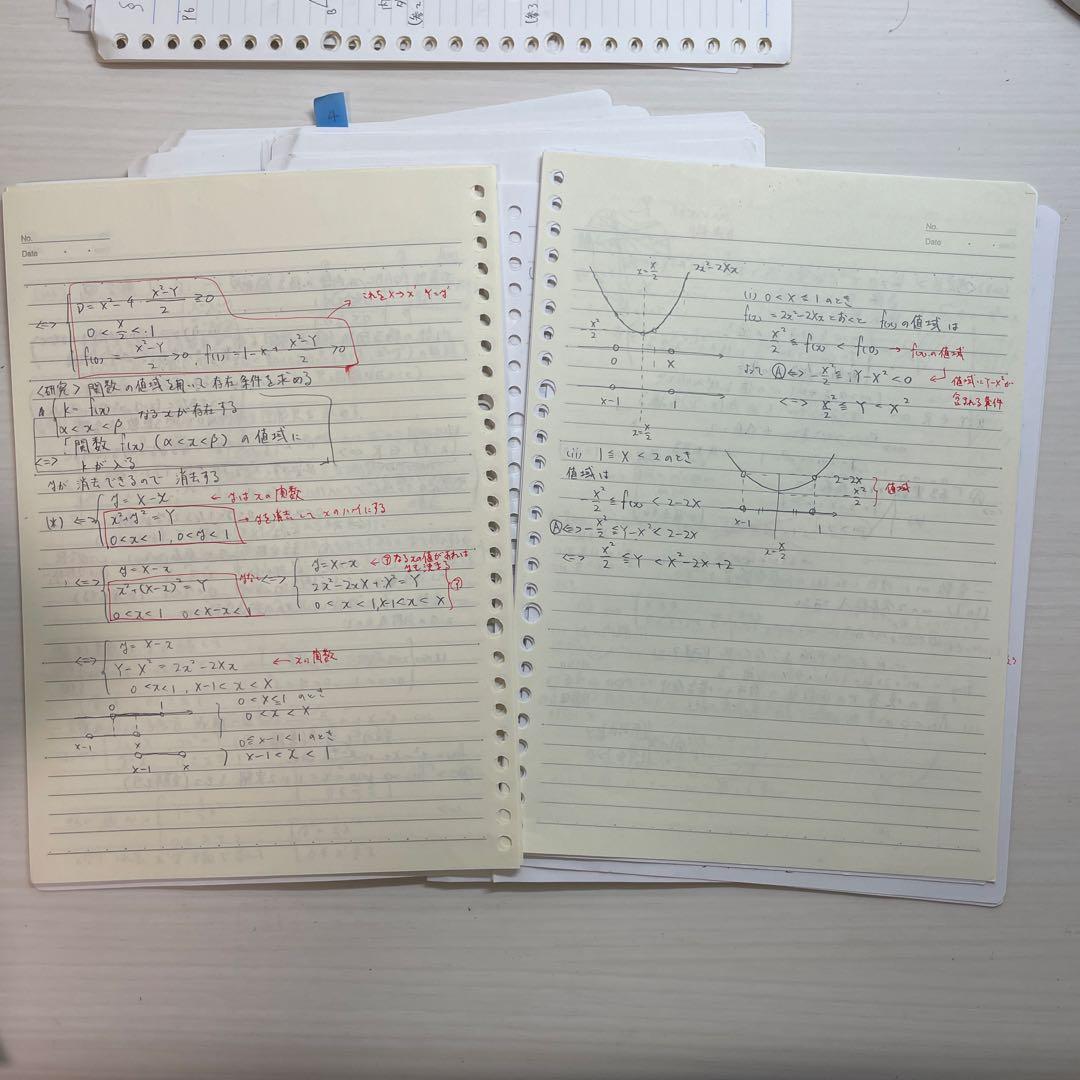 4
No.
Date
D = X² - 4 · (X²-Y)/2 ≧ 0
⇔ 0 < X/2 < 1
f(0) = (X²-Y)/2 > 0, f(1) = 1 - X + (X²-Y)/2 > 0
これを X→x' Y=y'
<研究> 関数の値域を用いて存在条件を求める
A { k = f(x)
α < x < β なるxが存在する
⇔ 「関数 f(x) (α < x < β) の値域に
kが入る
yが消去できるので 消去する
(*) ⇔ { y = X - x ← yはxの関数
x² + y² = Y → yを消去してxのハイにする
0 < x < 1, 0 < y < 1
⇔ { y = X - x
x² + (X-x)² = Y
0 < x < 1 0 < X-x < 1
⇔ { y = X - x ← ⑦なるxの値があれば
2x² - 2xX + X² = Y
0 < x < 1, X-1 < x < X ⑦
⇔ { y = X - x
Y - X² = 2x² - 2Xx ← xの関数
0 < x < 1, X-1 < x < X
0 1
X-1 X
0 < X ≦ 1 のとき
0 < x < X
X-1 X
0 ≦ X-1 < 1 のとき
X-1 < x < 1
No.
Date
x = X/2
2x² - 2Xx
-X²/2
0 X
X-1 1
x = X/2
(i) 0 < X ≦ 1 のとき
f(x) = 2x² - 2Xx とおくと f(x)の値域は
-X²/2 ≦ f(x) < f(0) → f(x)の値域
よって Ⓐ ⇔ -X²/2 ≦ Y - X² < 0 ← 値域にY-X²が
含まれる条件
⇔ X²/2 ≦ Y < X²
(ii) 1 ≦ X < 2 のとき
値域は
-X²/2 ≦ f(x) < 2 - 2X
Ⓐ ⇔ -X²/2 ≦ Y - X² < 2 - 2X
⇔ X²/2 ≦ Y < X² - 2X + 2
2 - 2X
-X²/2
値域
X-1 1
x = X/2